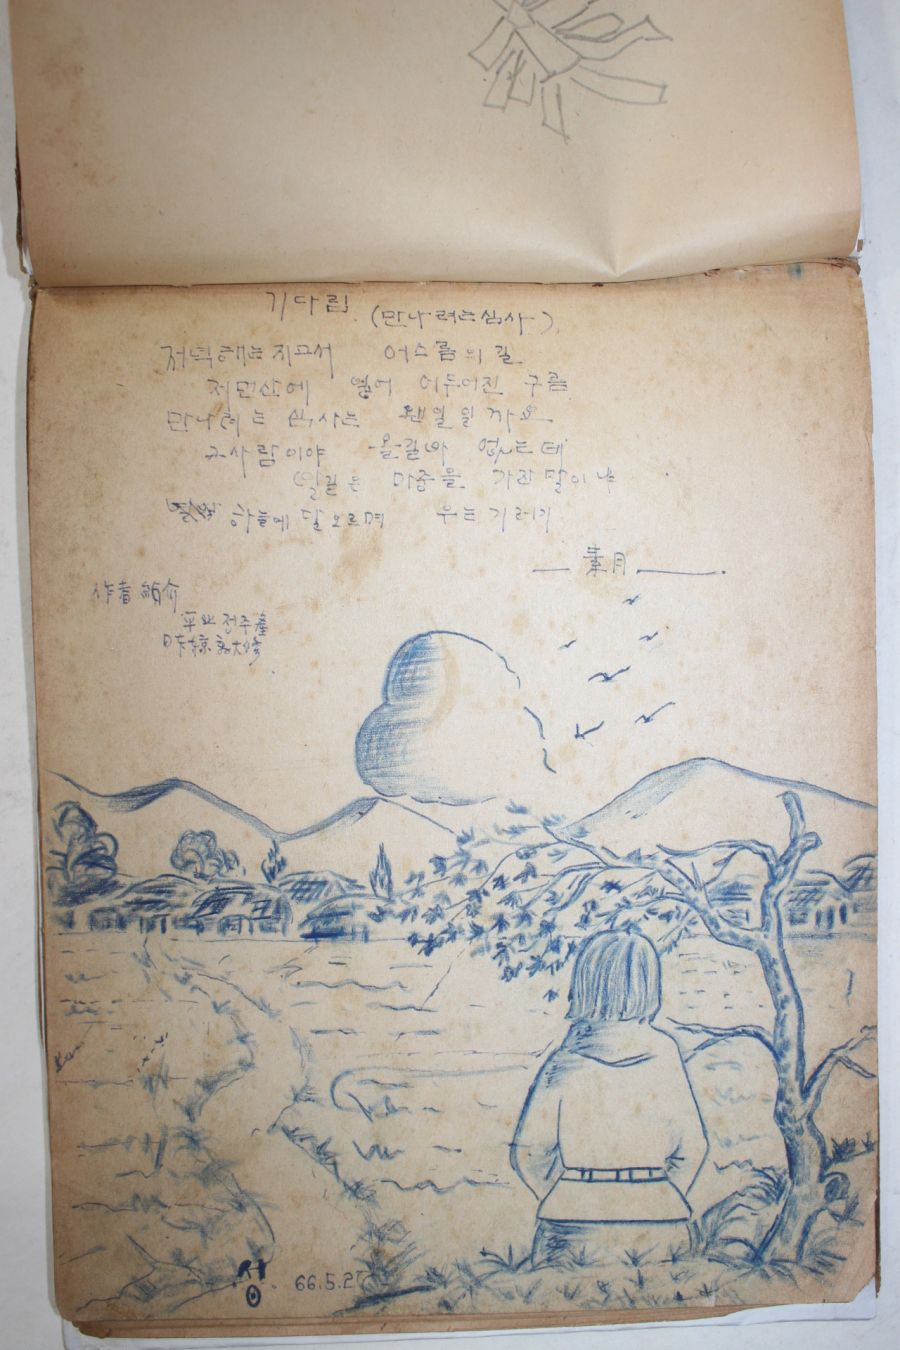 기다림. (만나려는심사).
저녁해는 지고서 어스름의 길
저먼산에 어두어진 구름
만나려는 심사는 웬일일까요
그사람이야 올길바 없는데
발길은 마중을 가잔말이냐
하늘에 달오르며 우는기러기
素月
作者
정주産
66.5.27